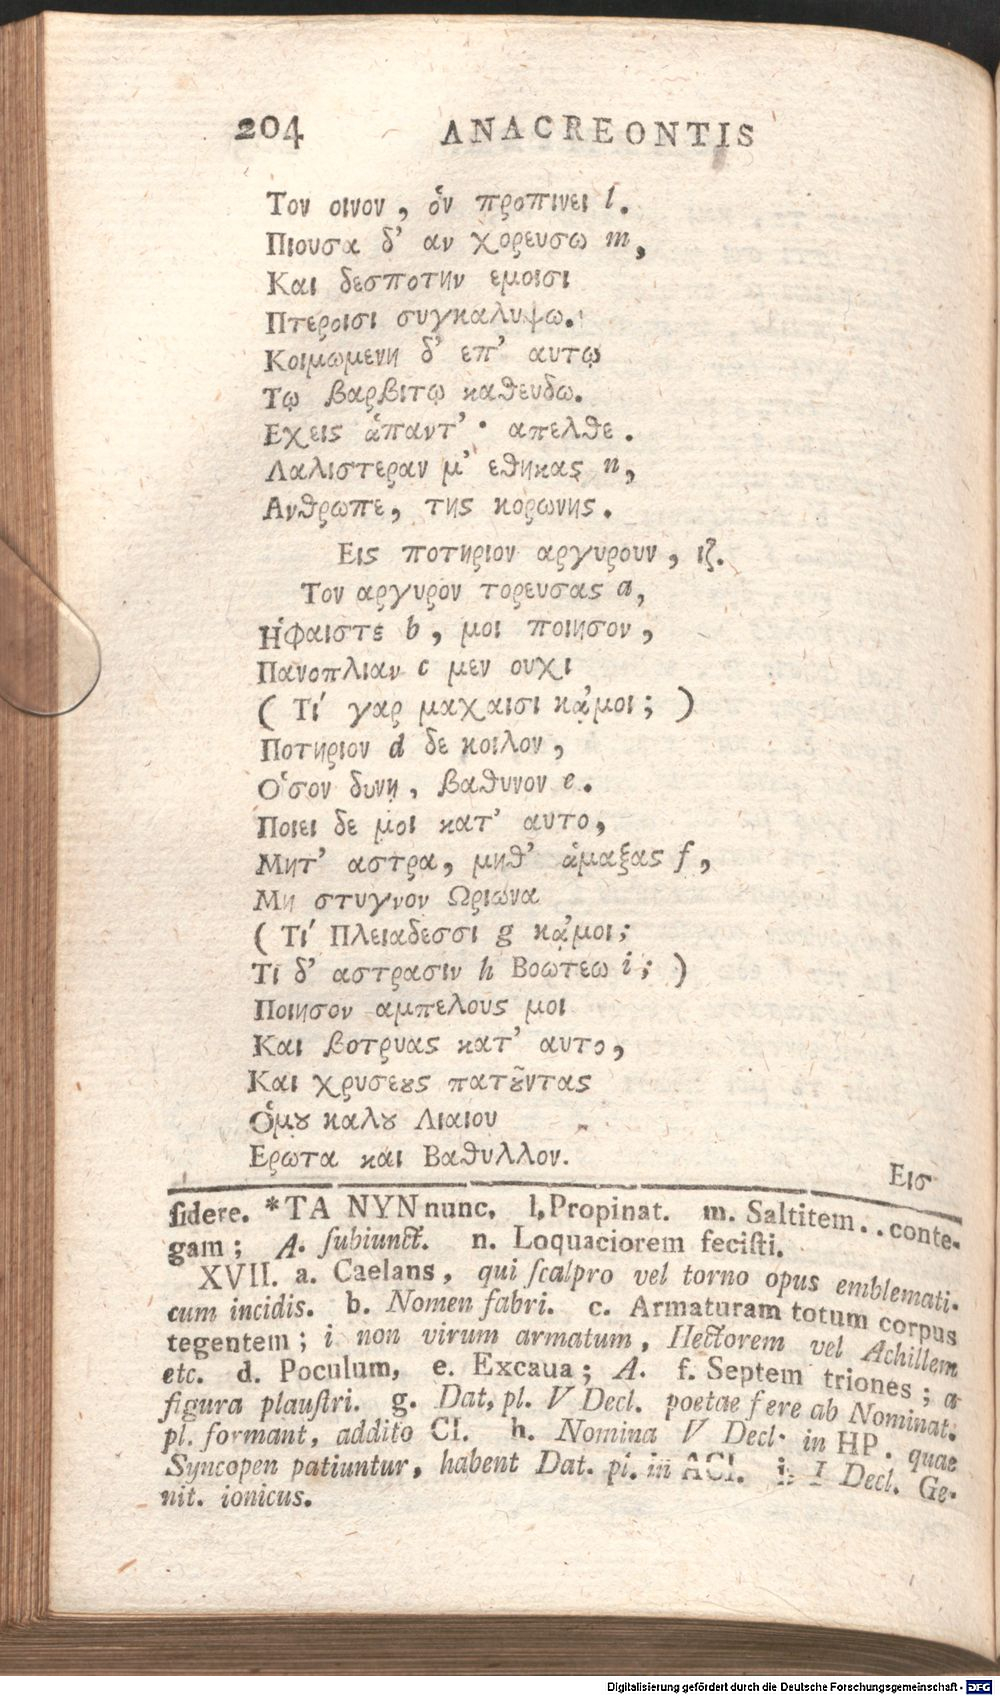 204 ANACREONTIS
Τον οινον, ὁν προπινει l.
Πιουσα δ’ αν χορευσω m,
Και δεσποτην εμοισι
Πτεροισι συγκαλυψω.
Κοιμωμενη δ’ επ’ αυτῳ
Τῳ βαρβιτῳ καθευδω.
Εχεις ἁπαντ’ · απελθε.
Λαλιστεραν μ’ εθηκας n,
Ανθρωπε, της κορωνης.
Εις ποτηριον αργυρουν, ιζ.
Τον αργυρον τορευσας a,
Ηφαιστε b, μοι ποιησον,
Πανοπλιαν c μεν ουχι
(Τί γαρ μαχαισι κᾀμοι;)
Ποτηριον d δε κοιλον,
Ὁσον δυνῃ, βαθυνον e.
Ποιει δε μοι κατ’ αυτο,
Μητ’ αστρα, μηθ’ ἁμαξας f,
Μη στυγνον Ωριωνα
(Τί Πλειαδεσσι g κᾀμοι;
Τι δ’ αστρασιν h Βοωτεω i;)
Ποιησον αμπελους μοι
Και βοτρυας κατ’ αυτο,
Και χρυσεȣς πατȣ͂ντας
Ὁμȣ καλȣ Λιαιου
Ερωτα και Βαθυλλον.
Εισ
ſidere. *TA NYN nunc. l. Propinat. m. Saltitem..conte-
gam; A. ſubiunct. n. Loquaciorem feciſti.
XVII. a. Caelans, qui ſcalpro vel torno opus emblemati-
cum incidis. b. Nomen fabri. c. Armaturam totum corpus
tegentem; i non virum armatum, Hectorem vel Achillem
etc. d. Poculum, e. Excaua; A. f. Septem triones; a
figura plauſtri. g. Dat. pl. V Decl. poetae fere ab Nominat.
pl. formant, addito CI. h. Nomina V Decl. in HP. quae
Syncopen patiuntur, habent Dat. pl. in ACI. i. I Decl. Ge-
nit. ionicus.
Digitalisierung gefördert durch die Deutsche Forschungsgemeinschaft - DFG